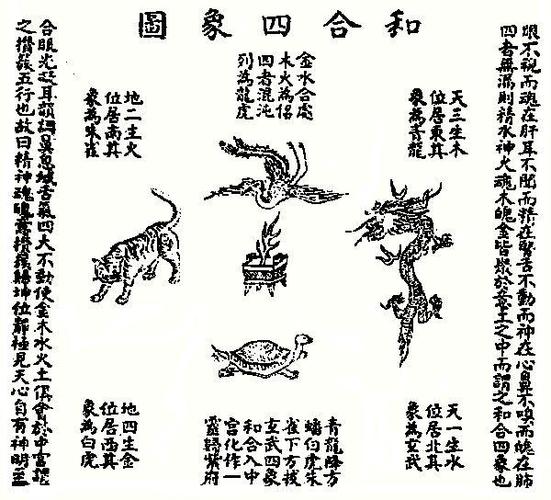 和合四象圖
眼不視而魂在肝耳不聞而精在腎舌不動而神在心鼻不嗅而魄在肺
四者無漏則精水神火魂木魄金皆聚於意土之中而謂之和合四象也
天三生木
位居東其
象為青龍
金水合處
木火為侶
四者混沌
列為龍虎
地二生火
位居南其
象為朱雀
天一生水
位居北其
象為玄武
青龍降方
蟠白虎朱
雀下方披
玄武四象
和合入中
宮化作一
靈歸紫府
地四生金
位居西其
象為白虎
含眼光凝耳韻調鼻息緘舌氣四大不動使金木水火土俱會於中宮謂
之攢簇五行也故曰精神魂魄意攢簇歸坤位靜極見天心自有神明至